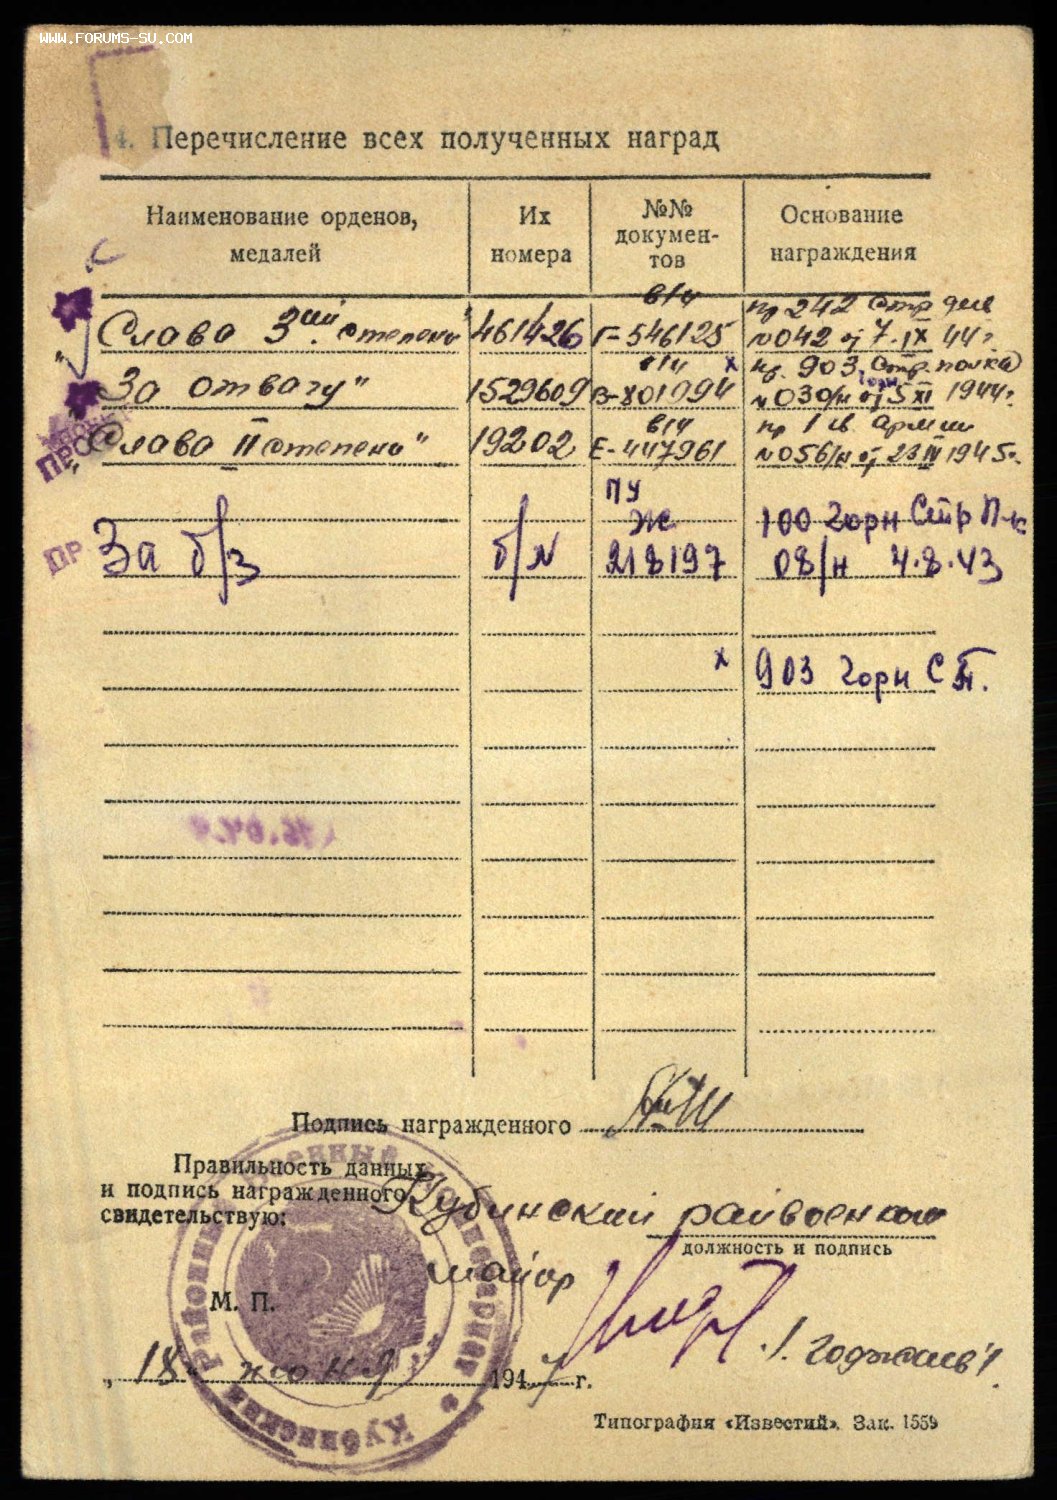 WWW.FORUMS-SU.COM
4. Перечисление всех полученных наград
Наименование орденов, медалей
Их номера
№№ докумен-тов
Основание награждения
Слава 3ий степени" 461426 в/ч Г-546125 пр 242 стр див №042 от 7.IX 44г.
"За отвагу" 1529609 в/ч В-801094 х пр. 903 стр. полка №030/н от 5 XI 1944г.
горн
"Слава II степени" 19202 в/ч Е-447961 пр 1 гв. армии №056/н от 23 IV 1945г.
ПР
За б/з б/N ПУ Ж 218197 100 горн Стр П-к 08/н 4.8.43
х 903 горн С П.
Подпись награжденного
Правильность данных
и подпись награжденного
свидетельствую:
Кубинский райвоенком
должность и подпись
майор
М. П.
Кубинский Районный Военный Комиссариат
/Годжаев/
„18" июня 1947 г.
Типография «Известий». Зак. 1559